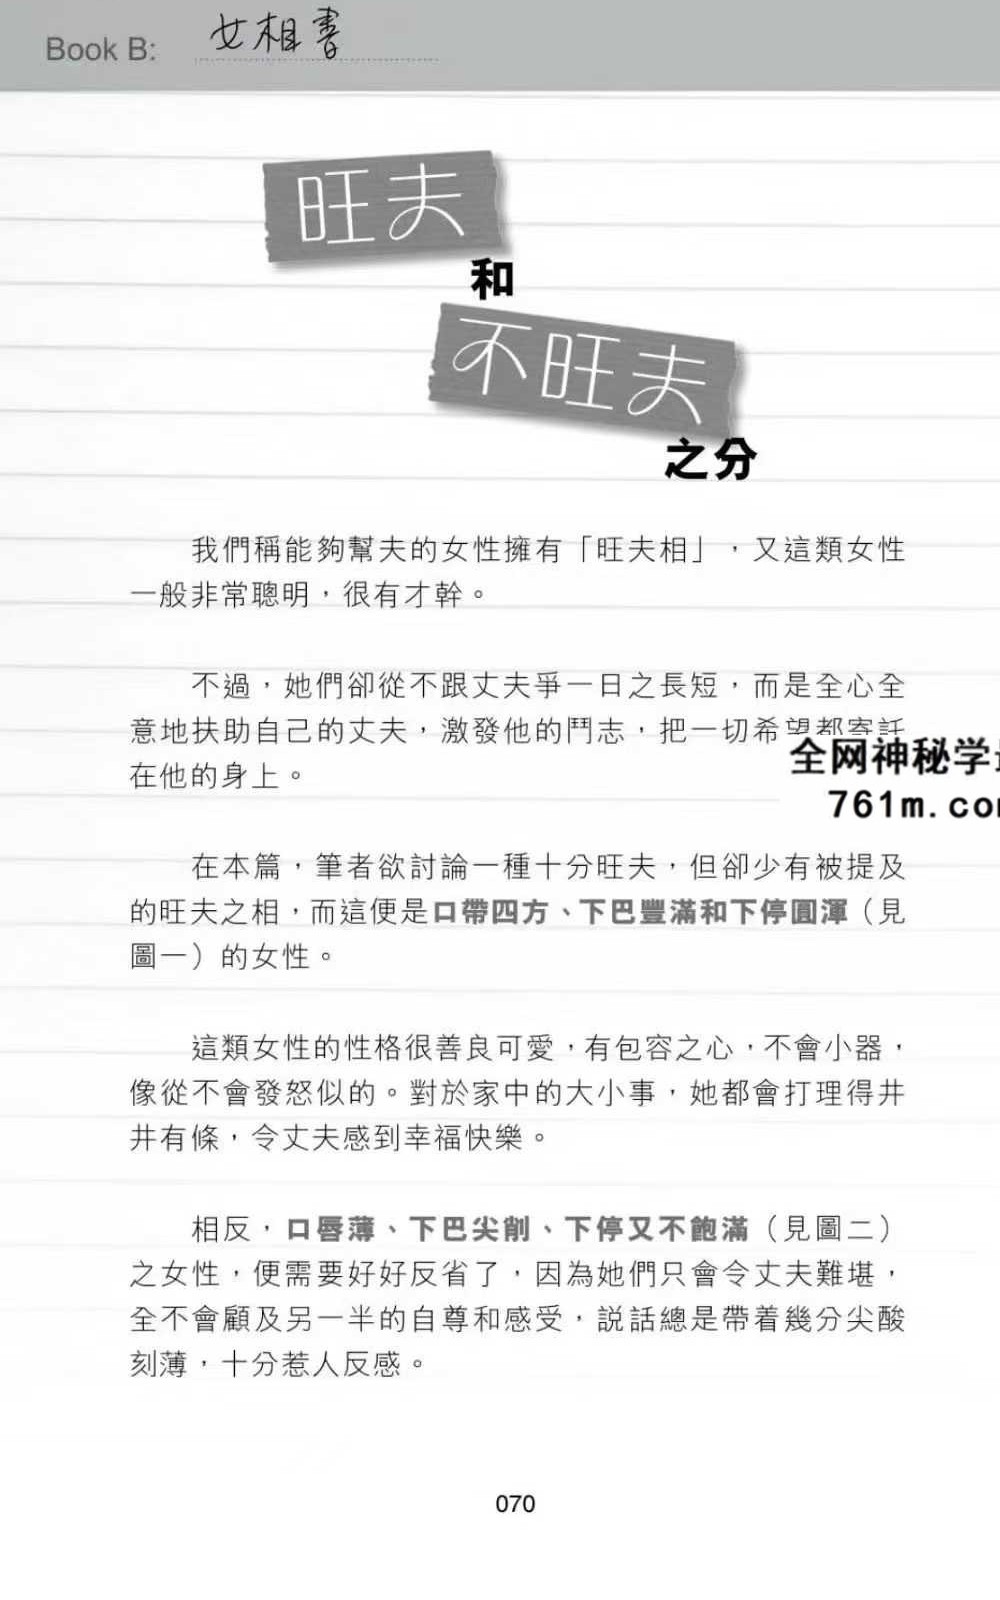 Book B: 女相書
旺夫
和
不旺夫
之分
我們稱能夠幫夫的女性擁有「旺夫相」，又這類女性
一般非常聰明，很有才幹。
不過，她們卻從不跟丈夫爭一日之長短，而是全心全
意地扶助自己的丈夫，激發他的鬥志，把一切希望都寄託
在他的身上。
全网神秘学
761m.co
在本篇，筆者欲討論一種十分旺夫，但卻少有被提及
的旺夫之相，而這便是口帶四方、下巴豐滿和下停圓渾（見
圖一）的女性。
這類女性的性格很善良可愛，有包容之心，不會小器，
像從不會發怒似的。對於家中的大小事，她都會打理得井
井有條，令丈夫感到幸福快樂。
相反，口唇薄、下巴尖削、下停又不飽滿（見圖二）
之女性，便需要好好反省了，因為她們只會令丈夫難堪，
全不會顧及另一半的自尊和感受，説話總是帶着幾分尖酸
刻薄，十分惹人反感。
070